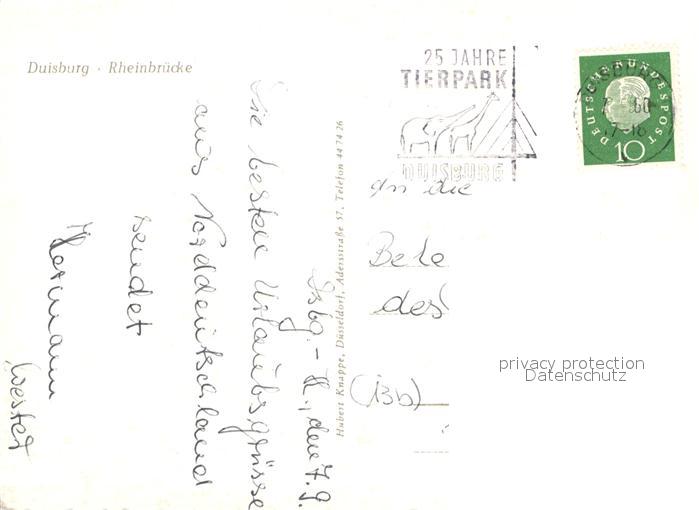 Duisburg · Rheinbrücke
25 JAHRE
TIERPARK
DUISBURG
DEUTSCHE BUNDESPOST
10
7. 60
17-18
Dsbg.-H., den 7.9.
Die besten Urlaubsgrüsse
aus Norddeutschland
sendet
Hermann
Wester
Hubert Knappe, Düsseldorf, Adersstraße 57, Telefon 44 74 26
An die
Bele
des
(13b)
privacy protection
Datenschutz